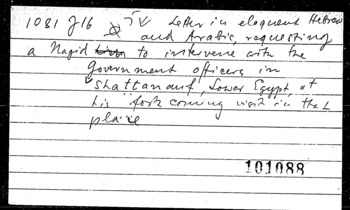 1081 J16 IV Letter in eloquent Hebrew
and Arabic, requesting
a Nagid to intervene with the
Government officers in
Shattanauf, Lower Egypt, at
his forthcoming visit in that
place
101088